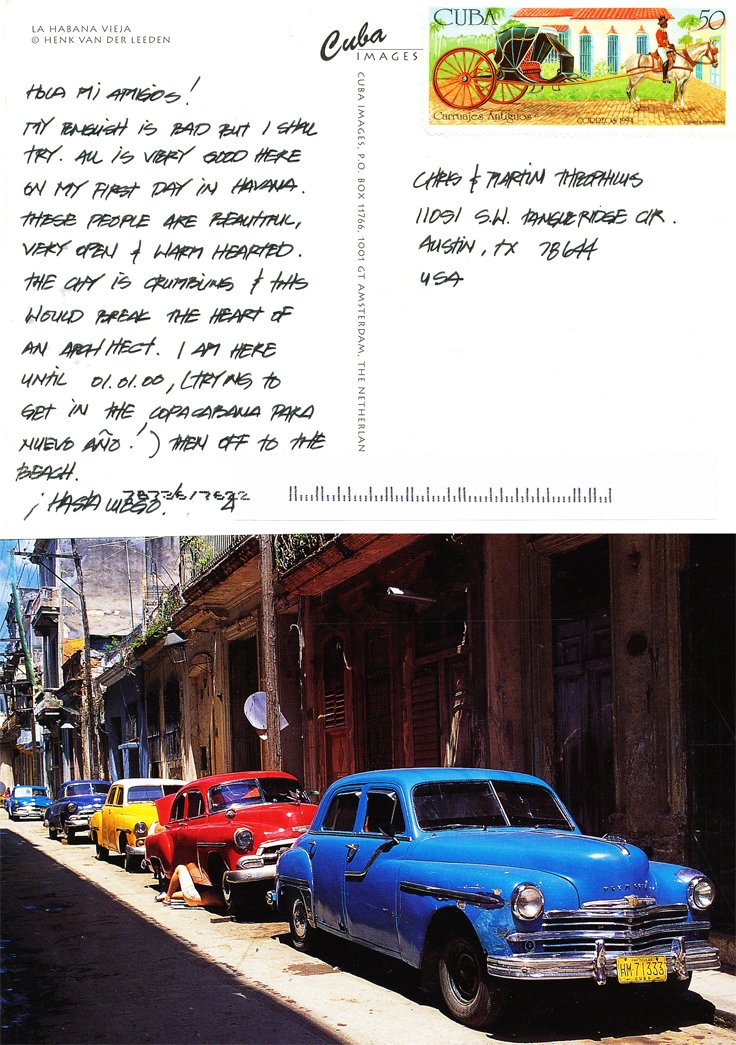 LA HABANA VIEJA
© HENK VAN DER LEEDEN
Cuba
IMAGES
CUBA IMAGES, P.O. BOX 11766, 1001 GT AMSTERDAM, THE NETHERLAN
CUBA 50
Carruajes Antiguos
CORREOS 1994
HOLA MI AMIGOS!
MY ENGLISH IS BAD BUT I SHALL
TRY. ALL IS VERY GOOD HERE
ON MY FIRST DAY IN HAVANA.
THESE PEOPLE ARE BEAUTIFUL,
VERY OPEN & WARM HEARTED.
THE CITY IS CRUMBLING & THIS
WOULD BREAK THE HEART OF
AN ARCHITECT. I AM HERE
UNTIL 01.01.00, (TRYING TO
GET IN THE COPACABANA PARA
NUEVO AÑO!) THEN OFF TO THE
BEACH.
¡HASTA LUEGO.
CHRIS & MARTIN THEOPHILUS
11051 S.W. TANGLERIDGE CIR.
AUSTIN, TX 78644
USA
PLYMOUTH
HM 71333
CUBA